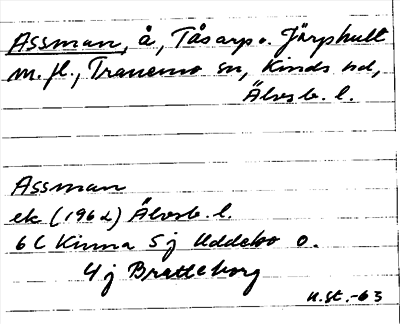 Assman, å, Tåsarp o. Järphult
m.fl., Tranemo sn, Kinds hd,
Älvsb. l.
Assman
ek (1962) Älvsb. l.
6 C Kinna 5j Uddebo o.
4j Bratteborg
n.st.-63